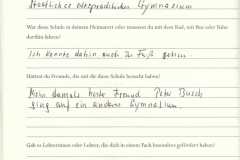 Staatliches Gymnasium
War diese Schule in deinem Heimatort oder musstest du mit dem Rad, mit Bus oder Bahn
dorthin fahren?
Ich konnte dahin auch zu Fuß gehen.
Hattest du Freunde, die mit dir diese Schule besucht haben?
Nein damals beste Freund Peter Busch
ging auf ein anderes Gymnasium.
Gab es Lehrerinnen oder Lehrer, die dich in einem Fach besonders gefördert haben?